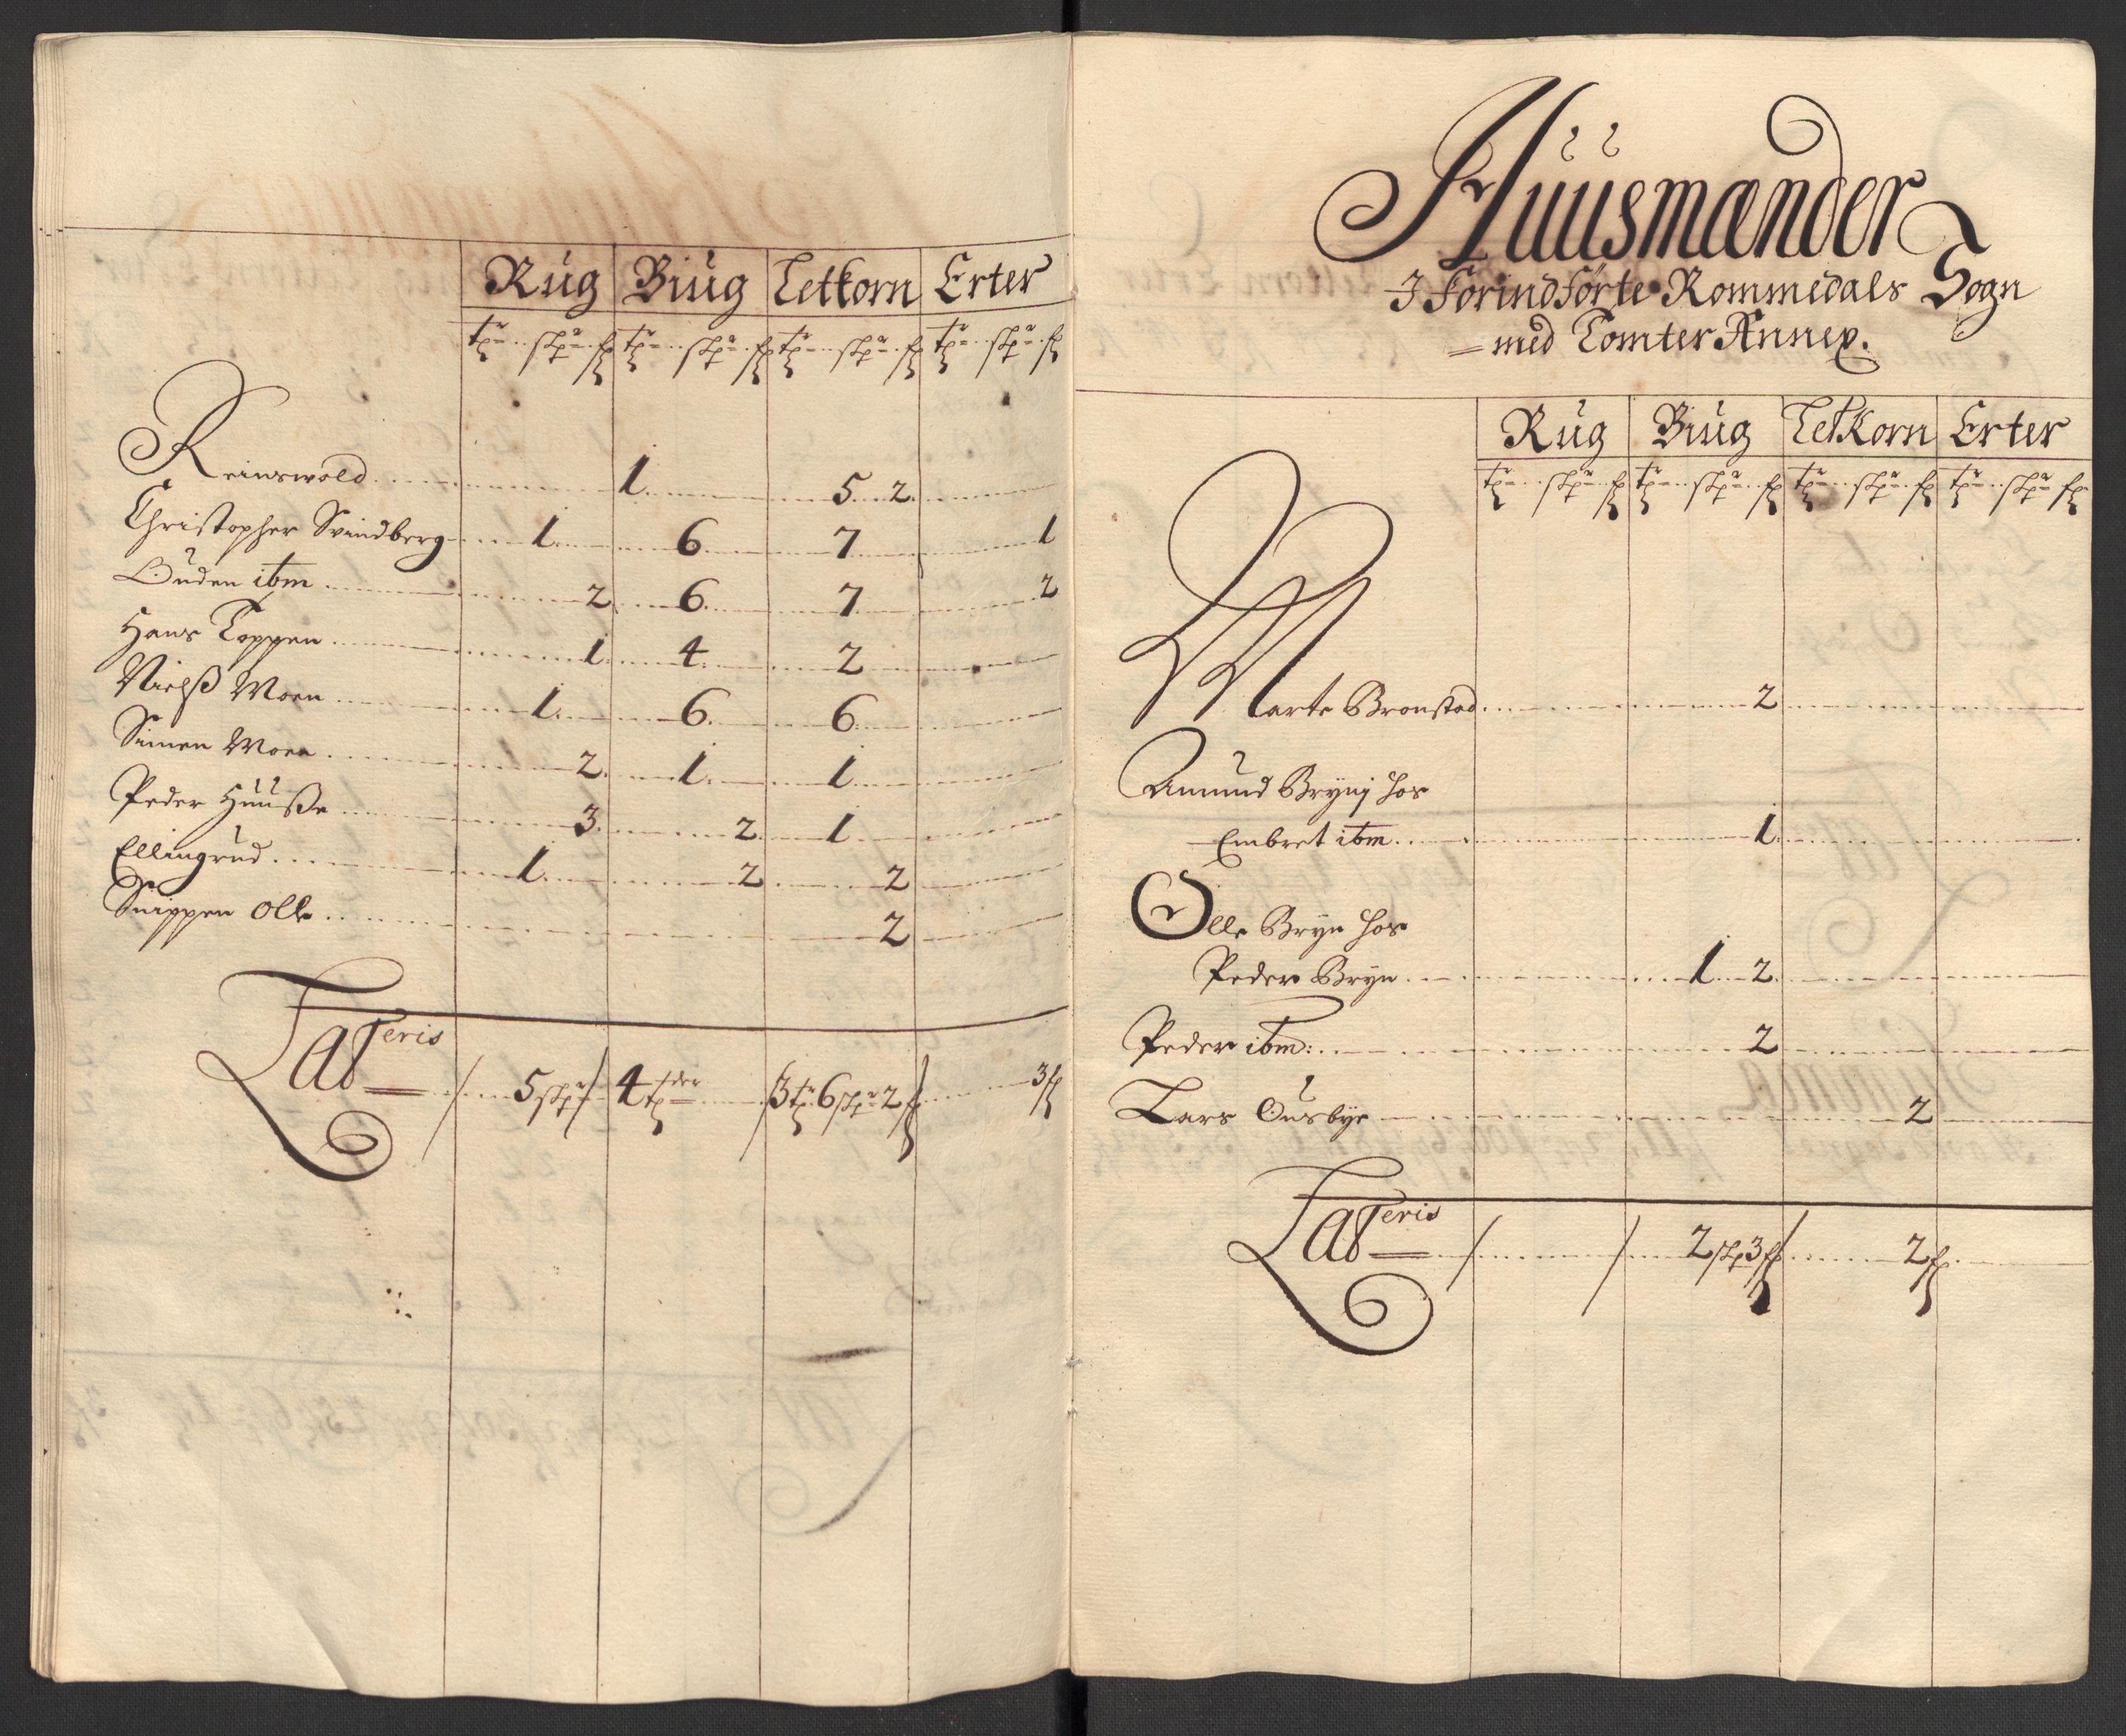 Rug Biug Letkorn Erter
tr skpr fk tr skpr fk tr skpr fk tr skpr fk
Reinswold 1 5 2
Christopher Svindberg 1 6 7 1
Ouden ibm 2 6 7 2
Hans Toppen 1 4 2
Nielß Moen 1 6 6
Simen Moen 2 1 1
Peder Huuße 3 2 1
Ellingrud 1 2 2
Snippen Olle 2
Lateris 5 skpr 4 tder 3 tr 6 skpr 2 fk 3 fk
Huusmænder
I Forindførte Rommedals Sogn
med Tomter Annex.
Rug Biug Letkorn Erter
tr skpr fk tr skpr fk tr skpr fk tr skpr fk
Marte Bronstad 2
Amund Bryni hos
Embret ibm 1
Olle Bryn hos
Peder Bryn 1 2
Peder ibm: 2
Lars Ousbye 2
Lateris 2 skp 3 fk 2 fk